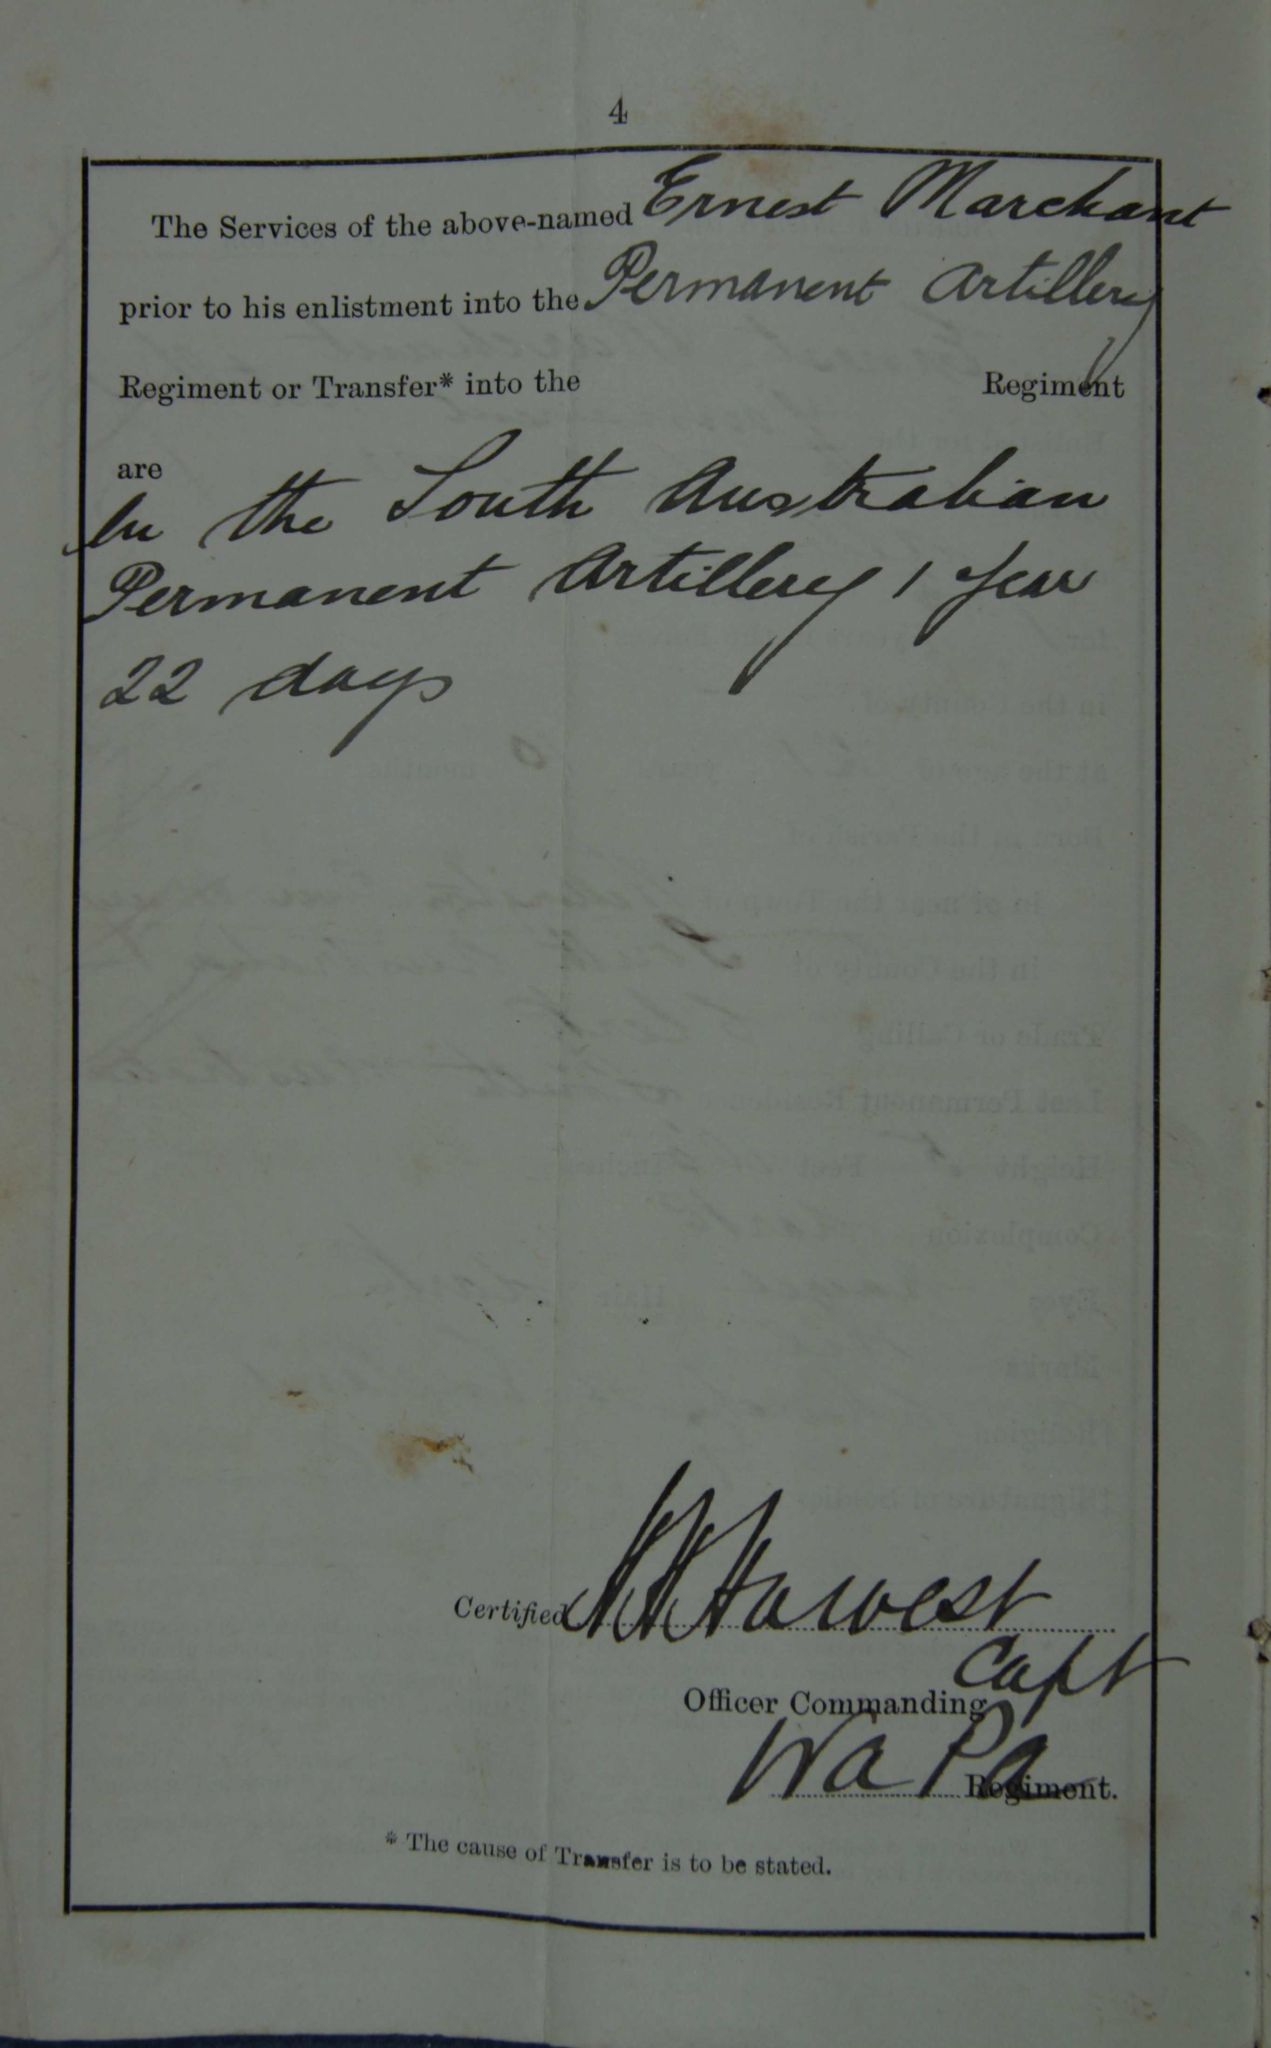 4
The Services of the above-named Ernest Marchant
prior to his enlistment into the Permanent Artillery
Regiment or Transfer* into the Regiment
are
In the South Australian
Permanent Artillery 1 Year
22 days
Certified Hawest
Capt
Officer Commanding
WAPA Regiment.
* The cause of Transfer is to be stated.